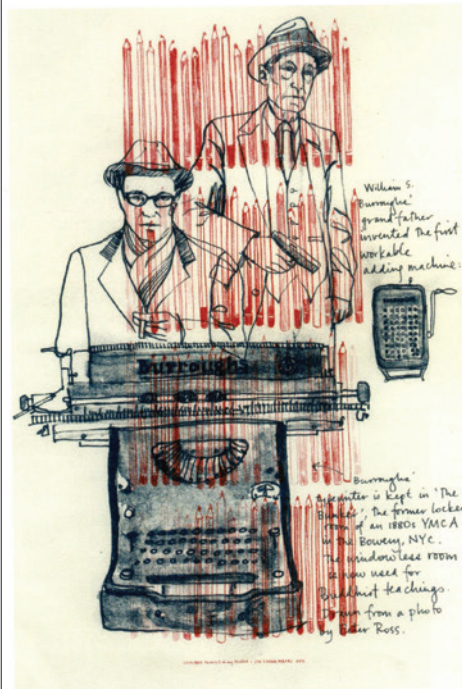 William S.
Burroughs'
grandfather
invented the first
workable
adding machine.
Burroughs
Burroughs'
typewriter is kept in 'The
Bunker', the former locker
room of an 1880s YMCA
in the Bowery, NYC.
The windowless room
is now used for
Buddhist teachings.
Drawn from a photo
by Peter Ross.